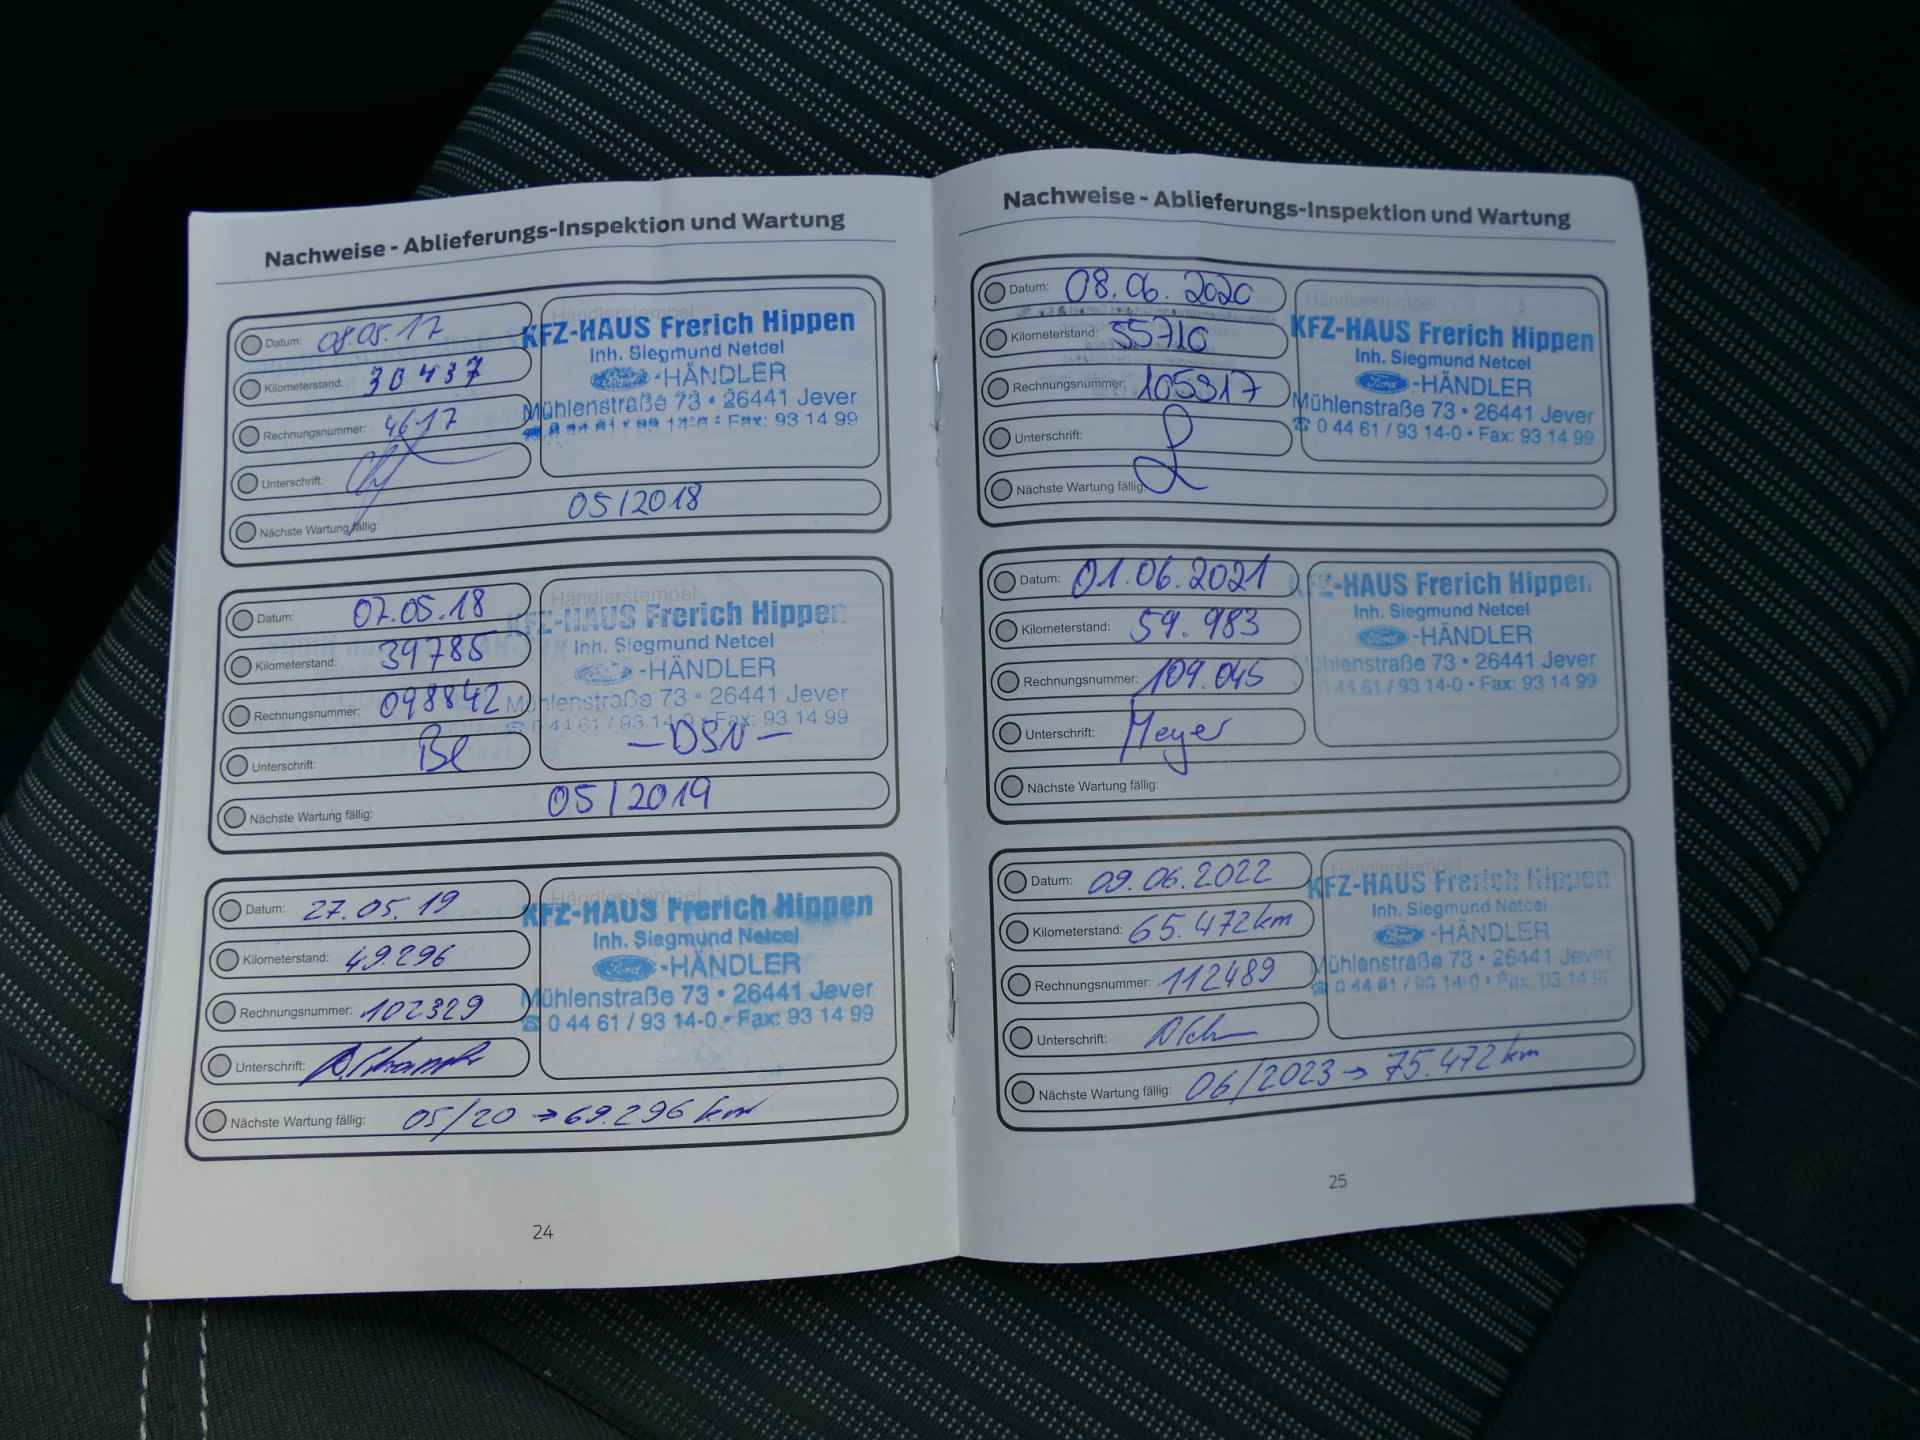 Nachweise - Ablieferungs-Inspektion und Wartung
Datum: 08.05.17
Kilometerstand: 30437
Rechnungsnummer: 4617
Unterschrift:
Nächste Wartung fällig: 05/2018
Händlerstempel
KFZ-HAUS Frerich Hippen
Inh. Siegmund Netcel
-HÄNDLER
Mühlenstraße 73 • 26441 Jever
Fax: 93 14 99
Datum: 07.05.18
Kilometerstand: 39785
Rechnungsnummer: 098842
Unterschrift: Be
Nächste Wartung fällig: 05/2019
Händlerstempel
KFZ-HAUS Frerich Hippen
Inh. Siegmund Netcel
Ford-HÄNDLER
Mühlenstraße 73 • 26441 Jever
☎ 0 44 61 / 93 14-0 • Fax: 93 14 99
-DSN-
Datum: 27.05.19
Kilometerstand: 49.296
Rechnungsnummer: 102329
Unterschrift:
Nächste Wartung fällig: 05/20 → 69.296 km
Händlerstempel
KFZ-HAUS Frerich Hippen
Inh. Siegmund Netcel
Ford-HÄNDLER
Mühlenstraße 73 • 26441 Jever
☎ 0 44 61 / 93 14-0 • Fax: 93 14 99
24
Nachweise - Ablieferungs-Inspektion und Wartung
Datum: 08.06.2020
Kilometerstand: 55710
Rechnungsnummer: 105317
Unterschrift:
Nächste Wartung fällig:
Händlerstempel
KFZ-HAUS Frerich Hippen
Inh. Siegmund Netcel
Ford-HÄNDLER
Mühlenstraße 73 • 26441 Jever
☎ 0 44 61 / 93 14-0 • Fax: 93 14 99
Datum: 01.06.2021
Kilometerstand: 59.983
Rechnungsnummer: 109.045
Unterschrift: Meyer
Nächste Wartung fällig:
KFZ-HAUS Frerich Hippen
Inh. Siegmund Netcel
Ford-HÄNDLER
Mühlenstraße 73 • 26441 Jever
0 44 61 / 93 14-0 • Fax: 93 14 99
Datum: 09.06.2022
Kilometerstand: 65.472 km
Rechnungsnummer: 112489
Unterschrift:
Nächste Wartung fällig: 06/2023 → 75.472 km
Händlerstempel
KFZ-HAUS Frerich Hippen
Inh. Siegmund Netcel
Ford-HÄNDLER
Mühlenstraße 73 • 26441 Jever
☎ 0 44 61 / 93 14-0 • Fax: 93 14 99
25